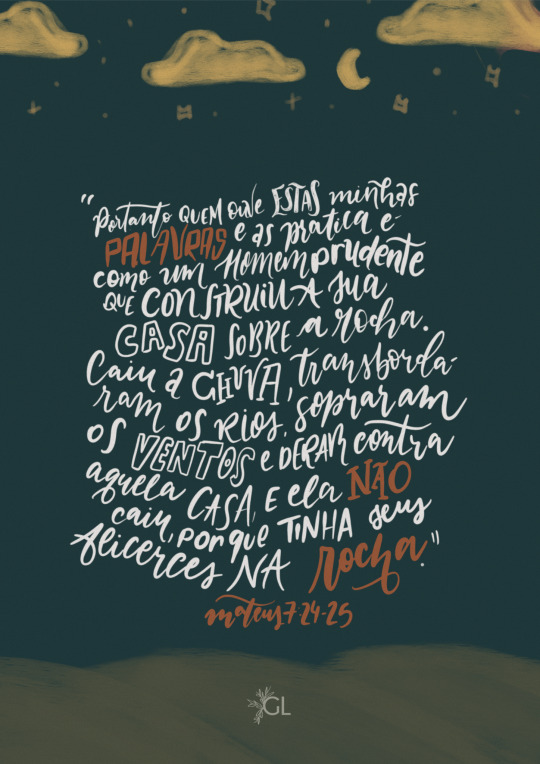 "Portanto QUEM OuVe ESTAS minhas
PALAVRAS e as pratica e'
como um Homem prudente
QUE CONSTRUIU A sua
CASA SOBRE a rocha.
Caiu a CHUVA, transborda-
ram os RIOS, sopraram
OS VENTOS e DERAM contra
aquela CASA, E ela NÃO
caiu, porque TINHA seus
Alicerces NA rocha."
mateus 7:24-25
GL